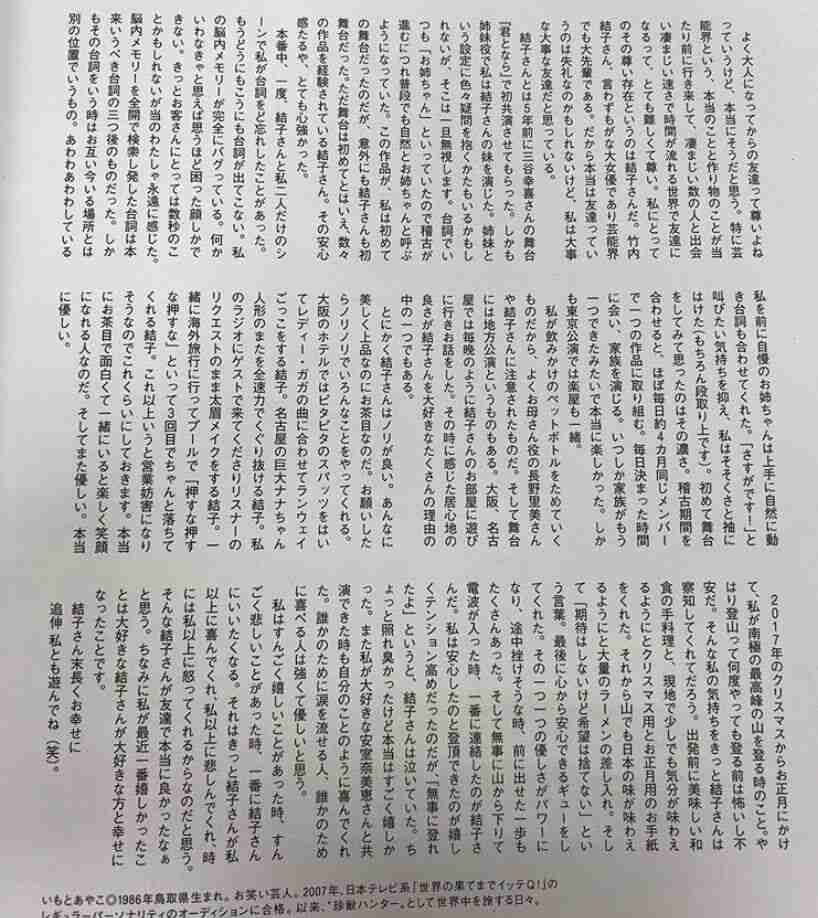 よく大人になってからの友達って尊いよね
っていうけど、本当にそうだと思う。特に芸
能界という、本当のことと作り物のことが当
たり前に行き来して、凄まじい数の人と出会
い凄まじい速さで時間が流れる世界で友達に
なるって、とても難しくて尊い。私にとって
その尊い存在というのは結子さんだ。竹内
結子さん、言わずもがな大女優であり芸能界
でも大先輩である。だから本当は友達ってい
うのは失礼なのかもしれないけど、私は大事
な大事な友達だと思っている。
結子さんとは5年前に三谷幸喜さんの舞台
『君となら』で初共演させてもらった。しかも
姉妹役で私は結子さんの妹を演じた。姉妹と
いう設定に色々疑問を抱くかたもいるかもし
れないが、そこは一旦無視します。台詞でい
つも「お姉ちゃん」といっていたので稽古が
進むにつれ普段でも自然とお姉ちゃんと呼ぶ
ようになっていた。この作品が、私は初めて
の舞台だったのだが、意外にも結子さんも初
舞台だった。ただ舞台は初めてとはいえ、数々
の作品を経験されている結子さん。その安心
感たるや、とても心強かった。
本番中、一度、結子さんと私二人だけのシ
ーンで私が台詞をど忘れしたことがあった。
もうどうにもこうにも台詞が出てこない。私
の脳内メモリーが完全にバグっている。何か
いわなきゃと思えば思うほど困った顔しかで
きない。きっとお客さんにとっては数秒のこ
とかもしれないが当のわたしゃ永遠に感じた。
脳内メモリーを全開で検索し発した台詞は本
来いうべき台詞の三つ後のものだった。しか
もその台詞をいう時はお互い今いる場所とは
別の位置でいうもの。あわわあわわしている
私を前に自慢のお姉ちゃんは上手に自然に動
き台詞も合わせてくれた。「さすがです!」と
叫びたい気持ちを抑え、私はそそくさと袖に
はけた(もちろん段取り上です)。初めて舞台
をしてみて思ったのはその濃さ。稽古期間を
合わせると、ほぼ毎日約4カ月同じメンバー
で一つの作品に取り組む。毎日決まった時間
に会い、家族を演じる。いつしか家族がもう
一つできたみたいで本当に楽しかった。しか
も東京公演では楽屋も一緒。
私が飲みかけのペットボトルをためていく
ものだから、よくお母さん役の長野里美さん
や結子さんに注意されたものだ。そして舞台
には地方公演というものもある。大阪、名古
屋では毎晩のように結子さんのお部屋に遊び
に行きお話をした。その時に感じた居心地の
良さが結子さんを大好きなたくさんの理由の
中の一つでもある。
とにかく結子さんはノリが良い。あんなに
美しく上品なのにお茶目なのだ。お願いした
らノリノリでいろんなことをやってくれる。
大阪のホテルではピタピタのスパッツをはい
てレディー・ガガの曲に合わせてランウェイ
ごっこをする結子。名古屋の巨大ナナちゃん
人形のまたを全速力でくぐり抜ける結子。私
のラジオにゲストで来てくださりリスナーの
リクエストのまま太眉メイクをする結子。一
緒に海外旅行に行ってプールで「押すな押す
な押すな」といって3回目でちゃんと落ちて
くれる結子。これ以上いうと営業妨害になり
そうなのでこれくらいにしておきます。本当
にお茶目で面白くて一緒にいると楽しく笑顔
になれる人なのだ。そしてまた優しい。本当
に優しい。
2017年のクリスマスからお正月にかけ
て、私が南極の最高峰の山を登る時のこと。や
はり登山って何度やっても登る前は怖いし不
安だ。そんな私の気持ちをきっと結子さんは
察知してくれてだろう。出発前に美味しい和
食の手料理と、現地で少しでも気分が味わえ
るようにとクリスマス用とお正月用のお手紙
をくれた。それから山でも日本の味が味わえ
るようにと大量のラーメンの差し入れ。そし
て「期待はしないけど希望は捨てない」とい
う言葉。最後に心から安心できるギューをし
てくれた。その一つ一つの優しさがパワーに
なり、途中挫けそうな時、前に出せた一歩も
たくさんあった。そして無事に山から下りて
電波が入った時、一番に連絡したのが結子さ
んだ。私は安心したのと登頂できたのが嬉し
くテンション高めだったのだが、「無事に登れ
たよ」というと、結子さんは泣いていた。ち
ょっと照れ臭かったけど本当はすごく嬉しか
った。また私が大好きな安室奈美恵さんと共
演できた時も自分のことのように喜んでくれ
た。誰かのために涙を流せる人、誰かのため
に喜べる人は強くて優しいと思う。
私はすんごく嬉しいことがあった時、すん
ごく悲しいことがあった時、一番に結子さん
にいいたくなる。それはきっと結子さんが私
以上に喜んでくれ、私以上に悲しんでくれ、時
には私以上に怒ってくれるからなのだと思う。
そんな結子さんが友達で本当に良かったなぁ
と思う。ちなみに私が最近一番嬉しかったこ
とは大好きな結子さんが大好きな方と幸せに
なったことです。
結子さん末長くお幸せに
追伸 私とも遊んでね(笑)。
いもとあやこ◎1986年鳥取県生まれ。お笑い芸人。2007年、日本テレビ系『世界の果てまでイッテQ!』の
レギュラーパーソナリティのオーディションに合格。以来、“珍獣ハンター”として世界中を旅する日々。